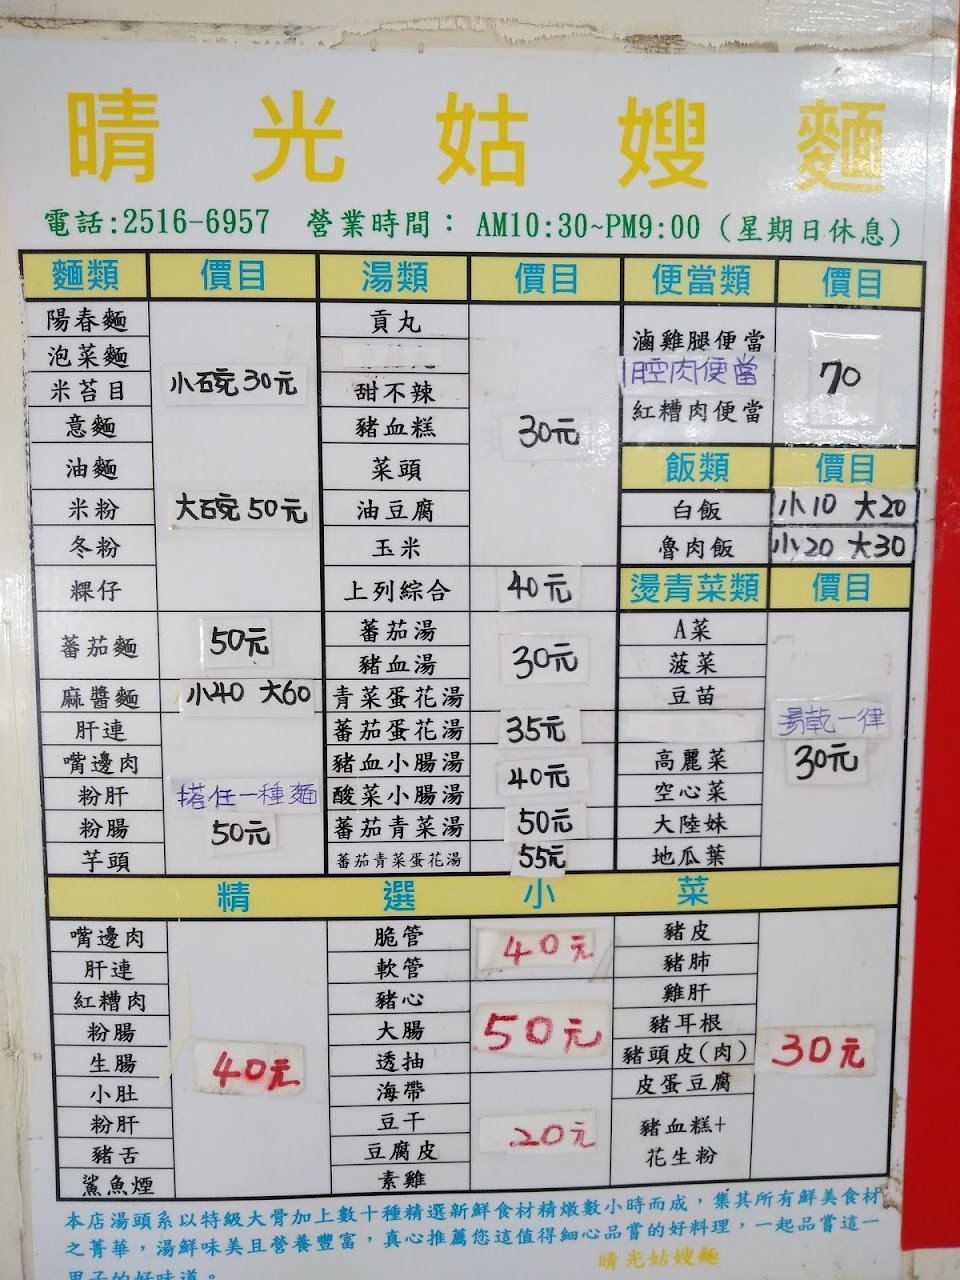 晴光姑嫂麵
電話:2516-6957 營業時間： AM10:30~PM9:00 (星期日休息)
麵類 價目 湯類 價目 便當類 價目
陽春麵
泡菜麵
米苔目
意麵
油麵
米粉
冬粉
粿仔
小碗30元
大碗50元
蕃茄麵 50元
麻醬麵 小40 大60
肝連
嘴邊肉
粉肝
粉腸
芋頭
搭任一種麵
50元
貢丸
甜不辣
豬血糕
菜頭
油豆腐
玉米
30元
上列綜合 40元
蕃茄湯
豬血湯
青菜蛋花湯
30元
蕃茄蛋花湯 35元
豬血小腸湯
酸菜小腸湯
40元
蕃茄青菜湯 50元
蕃茄青菜蛋花湯 55元
滷雞腿便當
腔肉便當
紅糟肉便當
70
飯類 價目
白飯 小10 大20
魯肉飯 小20 大30
燙青菜類 價目
A菜
菠菜
豆苗
高麗菜
空心菜
大陸妹
地瓜葉
湯乾一律
30元
精選小菜
嘴邊肉
肝連
紅糟肉
粉腸
生腸
小肚
粉肝
豬舌
鯊魚煙
40元
脆管
軟管
40元
豬心
大腸
透抽
50元
海帶
豆干
豆腐皮
素雞
20元
豬皮
豬肺
雞肝
豬耳根
豬頭皮(肉)
皮蛋豆腐
豬血糕+
花生粉
30元
本店湯頭系以特級大骨加上數十種精選新鮮食材精燉數小時而成，集其所有鮮美食材
之菁華，湯鮮味美且營養豐富，真心推薦您這值得細心品嘗的好料理，一起品嘗這一
的好味道。
晴光姑嫂麵